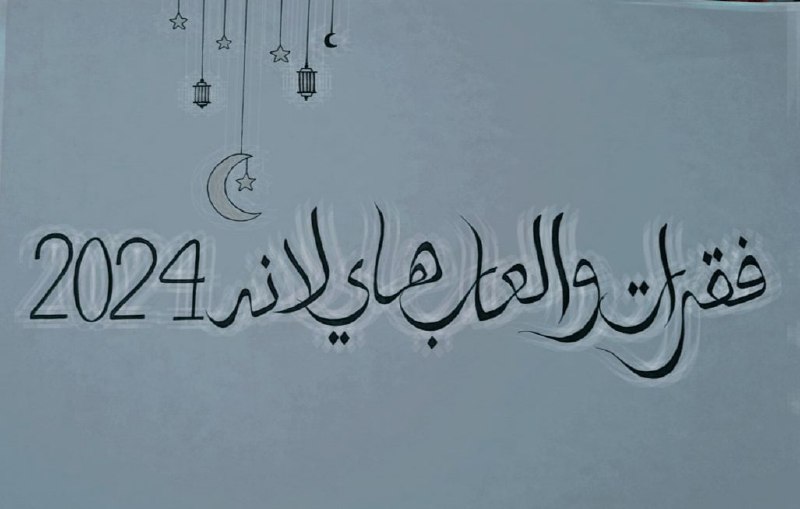 فقرات والعاب هاي لاند 2024